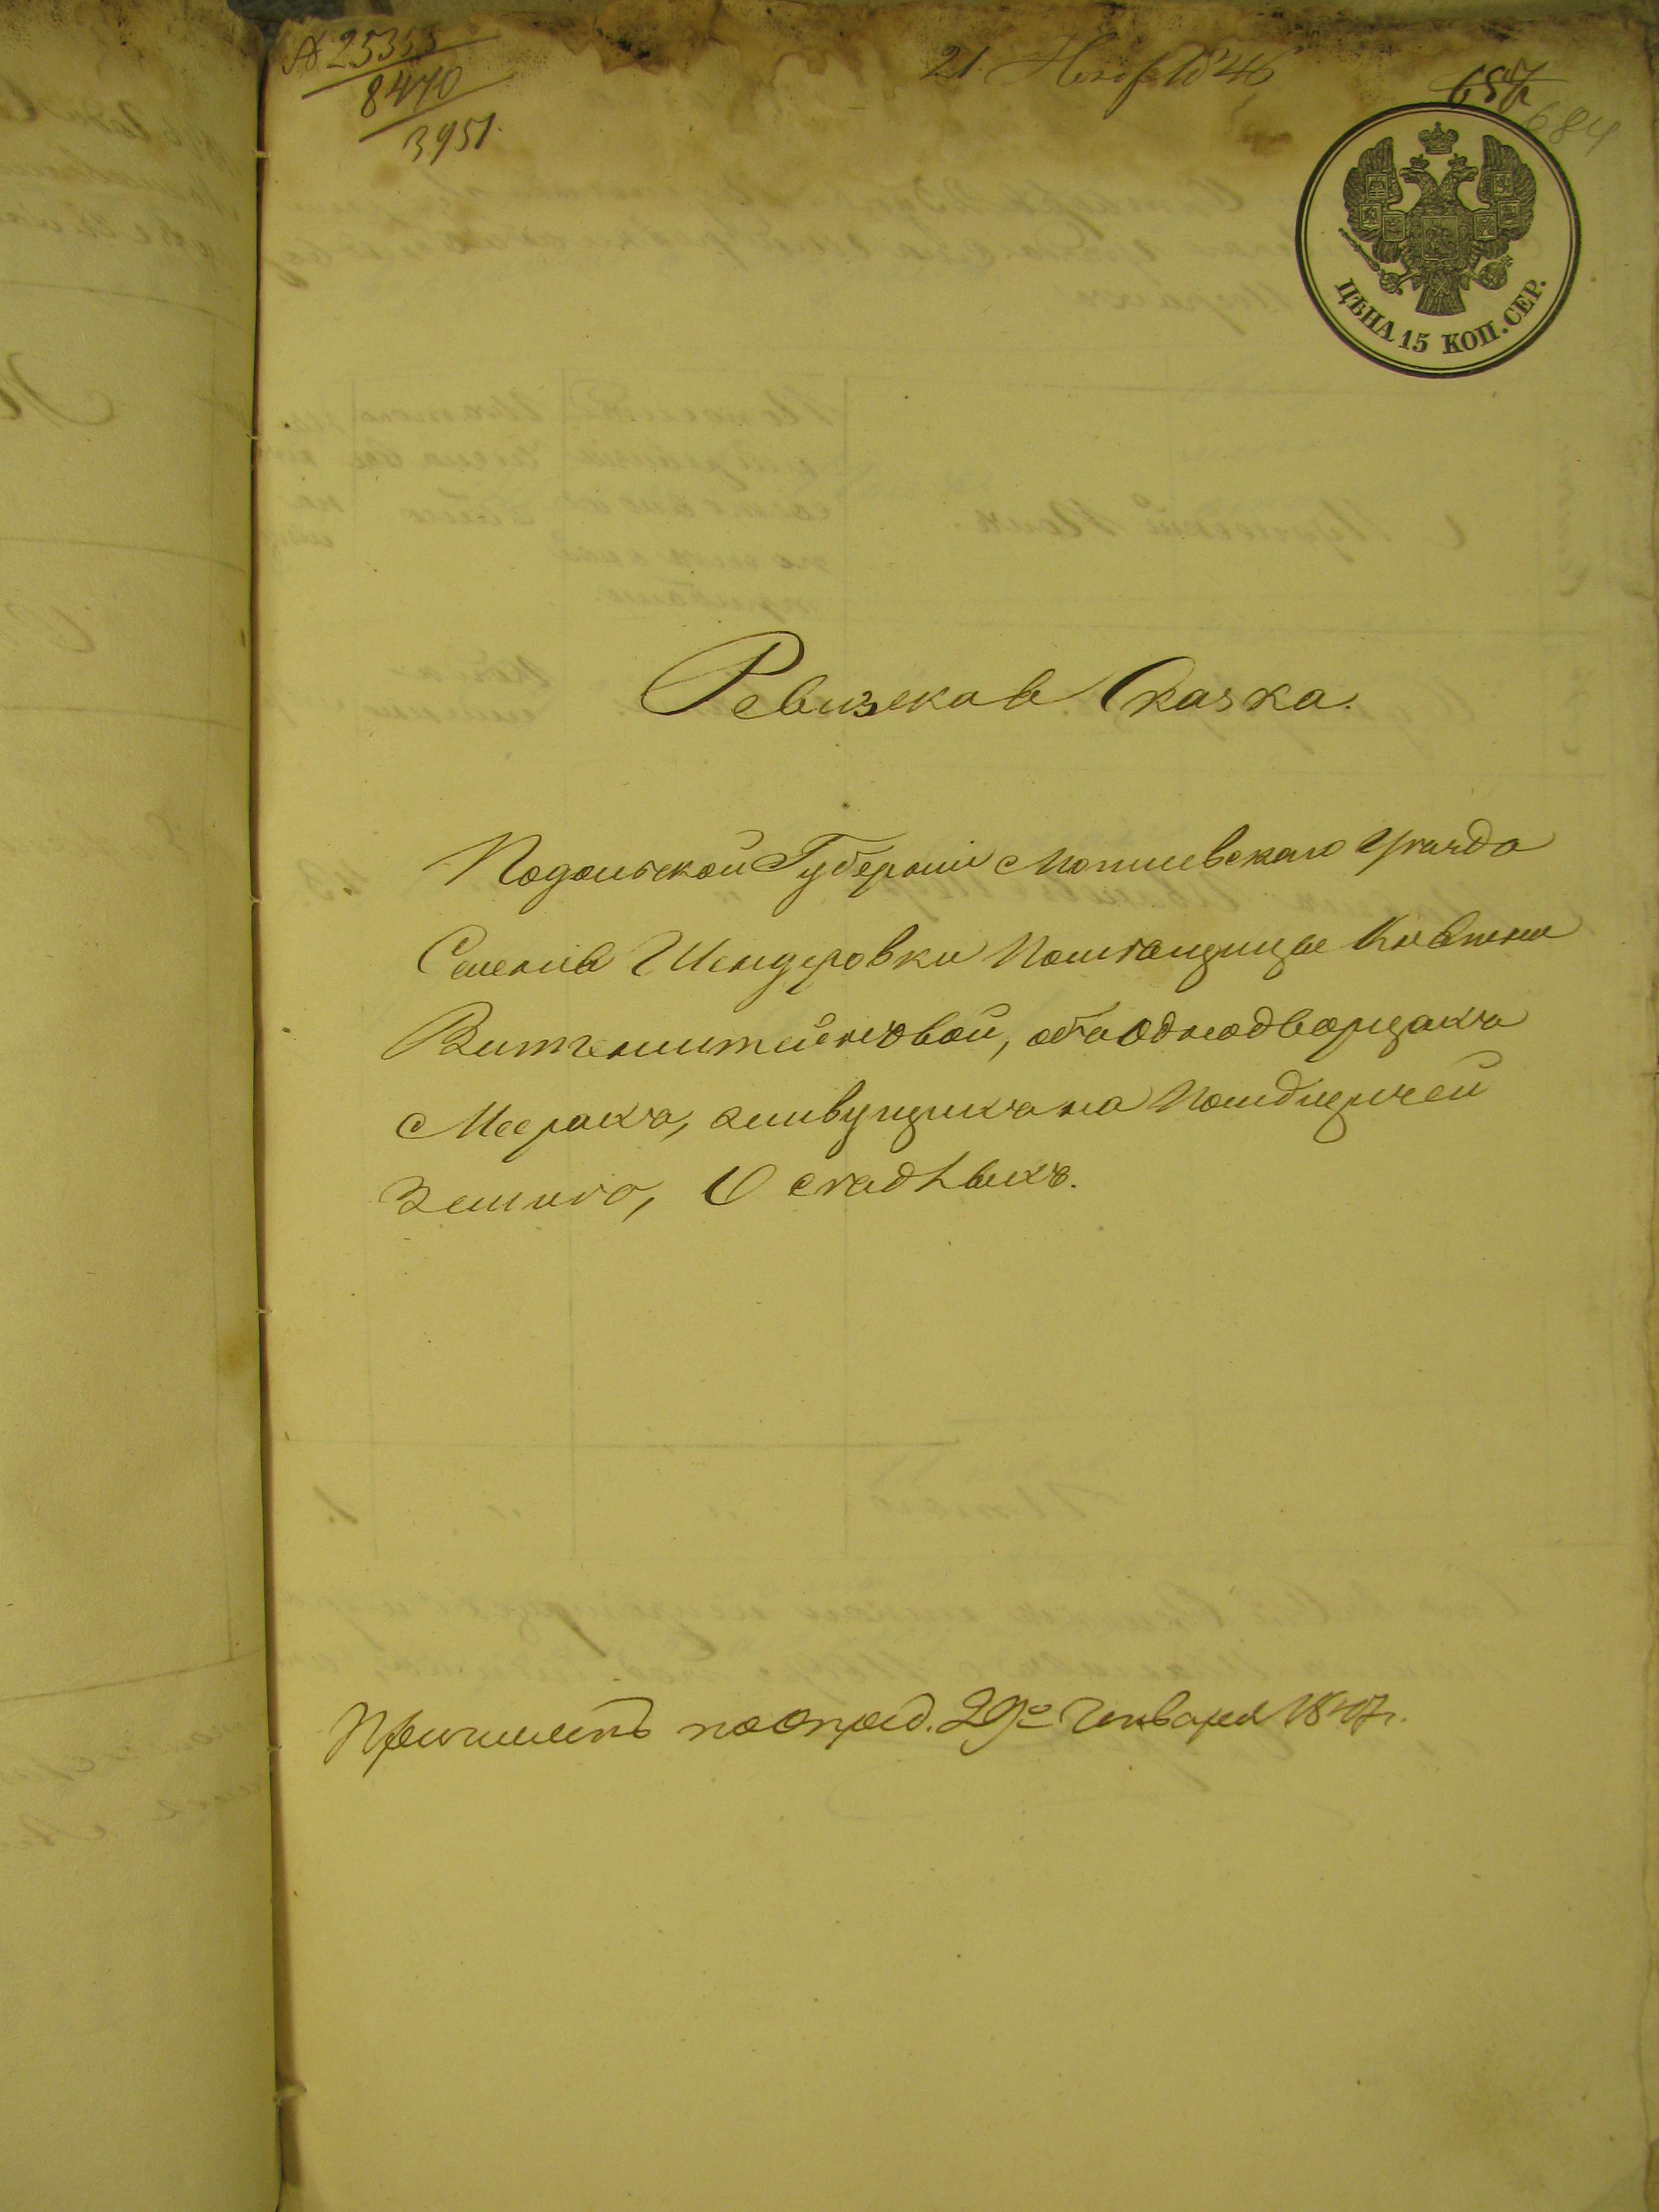 № 25355
8470
3951.
21 Нояб 1846
687
684
ЦѢНА 15 КОП. СЕР.
Ревизская Сказка.
Подольской Губерніи Могилевскаго Уѣзда
Селенія Шендеровки Помѣщицы Княгини
Витгенштейновой, объ однодворцахъ
живущихъ на Помѣщичей
землѣ, Осѣдлыхъ.
29го Января 1847г.